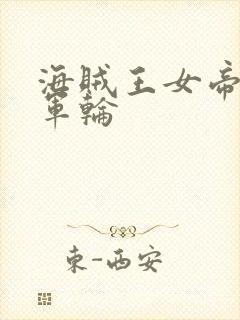 海賊王女帝
軍輪
束-西安